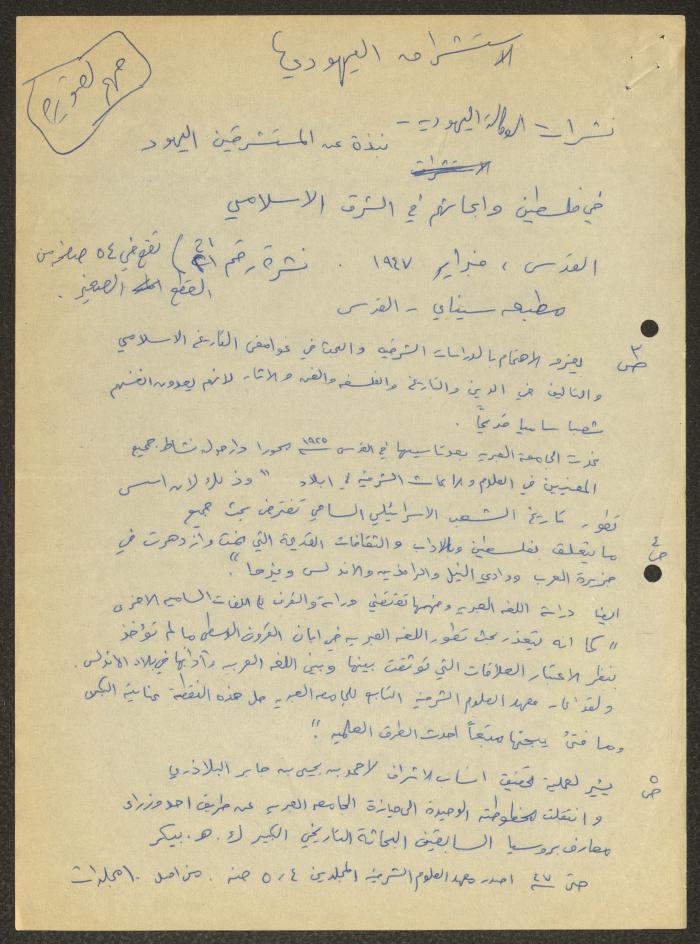 الاستشراق اليهودي
نشرات الوكالة اليهودية – نبذة عن المستشرقين اليهود
في فلسطين وابحاثهم في الشرق الاسلامي
القدس ، فبراير ١٩٤٧ . نشرة رقم ( تقع في ٥٤ صفحة من
القطع الصغير .
مطبعه سيناي – القدس
ص ٣
يعزو الاهتمام بالدراسات الشرقيه والبحث في غوامض التاريخ الاسلامي
والتأليف في الدين والتاريخ والفلسفه والفن والاثار لانهم يعدون انفسهم
شعبا ساميا قديماً .
غدت الجامعة العبريه بعد تاسيسها في القدس سنه ١٩٢٥ محورا دار حوله نشاط جميع
المعنيين في العلوم والابحاث الشرقية في البلاد " وذلك لان اسس
تطور تاريخ الشعب الاسرائيلي السامي تفترض بحث جميع
ص ٤
ما يتعلق بفلسطين وبالاداب والثقافات القديمة التي نمت وازدهرت في
جزيرة العرب ووادي النيل والرافدين والاندلس وغيرها ".
ايضا دراسة اللغه العبريه وفهمها تقتضي دراسة اللغات الساميه الاخرى
" كما انه يتعذر بحث تطور اللغه العبريه في ابان القرون الوسطى ما لم تؤخذ
بنظر الاعتبار العلاقات التي توثقت بينها وبين اللغه العربيه وآدابها في بلاد الاندلس .
ولقد اعار معهد العلوم الشرقية التابع للجامعه العبريه حل هذه النقطة عنايته الكبرى
وما فتئ يبحثها متبعاً احدث الطرق العلميه ".
ص ٥
يشير لعملية تحقيق انساب الاشراف لاحمد بن يحيى بن جابر البلاذري
وانتقلت مخطوطته الوحيدة الى حيازة الجامعه العبريه عن طريق احد وزراء
معارف بروسيا السابقين البحاثة التاريخي الكبير ك . هـ . بيكر
حتى سنه ٤٧ اصدر معهد العلوم الشرقية المجلدين ٤ ر ٥ منه . من اصل ١٠ مجلدات